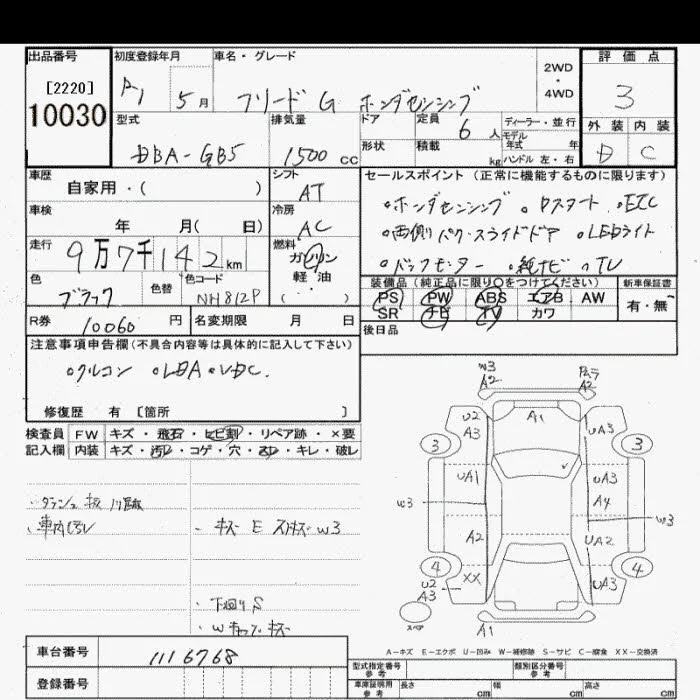 出品番号 初度登録年月 車名・グレード 評価点
[2220]
10030
R1 5月 フリード G ホンダセンシング 2WD・4WD 3
型式 排気量 ドア 定員 6人 ディーラー・並行 外装 内装
DBA-GB5 1500cc 形状 積載 kg モデル年式 年 ハンドル 左・右 D C
車歴 シフト セールスポイント(正常に機能するものに限ります)
自家用・( ) AT
車検 冷房 ・ホンダセンシング ・Pスタート ・ETC
年 月( 日) AC ・両側パワースライドドア ・LEDライト
走行 燃料
9万7千142km ガソリン ・純ナビ ・TV
色 色替 色コード 軽油 装備品(純正品に限り○をつけてください) 新車保証書
ブラック NH812P ( ・ ・ ) PS PW ABS エアB AW 有・無
R券 10060円 名変期限 月 日 SR ナビ TV カワ
注意事項申告欄(不具合内容等は具体的に記入して下さい) 後日品
・クルコン ・LDA・VDC.
修復歴 有 [箇所 ]
検査員 FW キズ・飛石・ヒビ割・リペア跡・×要
記入欄 内装 キズ・汚レ・コゲ・穴・スレ・キレ・破レ
・キズ E スリキズ W3
・下回りS
W3 A2 A2
U2 A3 A1 UA3
3 3
UA1 UA3
W3 A4 W3
A2 UA2
4 XX UA3 4
U2 A3
スペア A1
A-キズ E-エクボ U-凹み W-補修跡 S-サビ C-腐食 XX-交換済
車台番号 1116768
登録番号
型式指定番号 参考 類別区分番号 参考
車庫証明用 参考 長さ cm 幅 cm 高さ cm